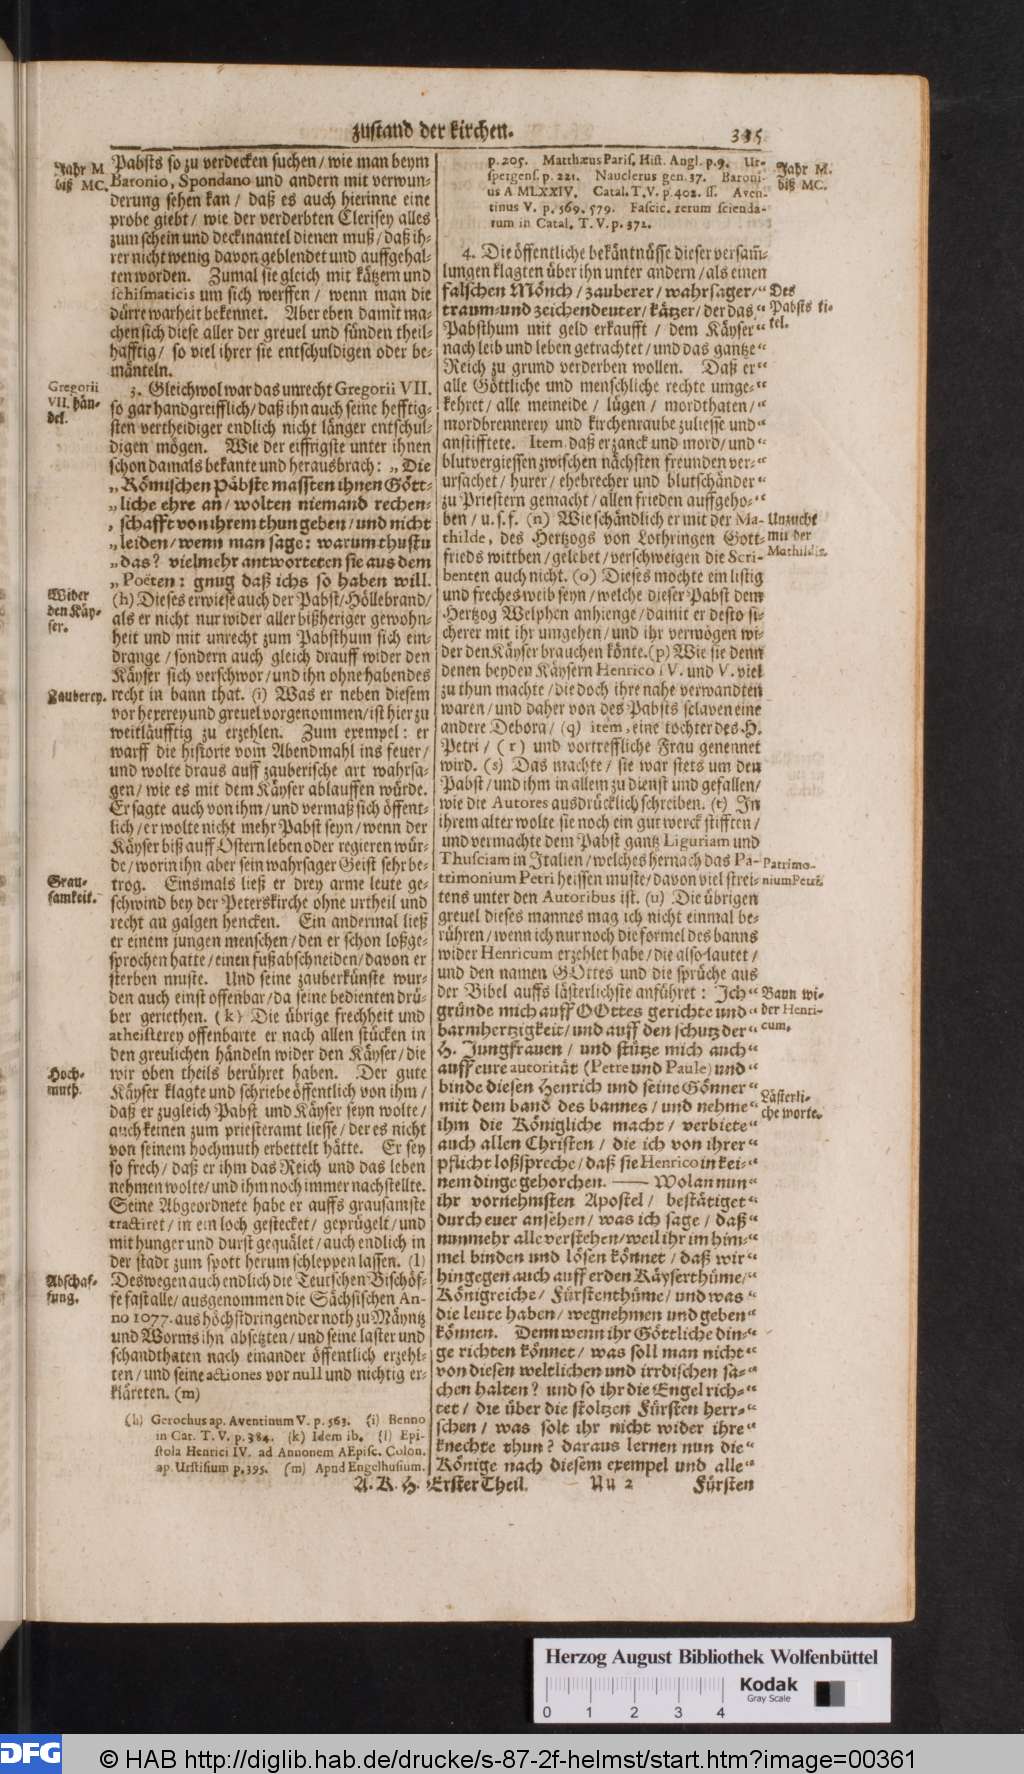 zustand der kirchen.
335
Jahr M
biß MC.
Pabsts so zu verdecken suchen / wie man beym
Baronio, Spondano und andern mit verwun-
derung sehen kan / daß es auch hierinne eine
probe giebt / wie der verderbten Clerisey alles
zum schein und deckmantel dienen muß / daß ih-
rer nicht wenig davon geblendet und auffgehal-
ten worden. Zumal sie gleich mit kätzern und
schismaticis um sich werffen / wenn man die
dürre warheit bekennet. Aber eben damit ma-
chen sich diese aller der greuel und sünden theil-
hafftig / so viel ihrer sie entschuldigen oder be-
mänteln.
Gregorii
VII. hän-
del.
3. Gleichwol war das unrecht Gregorii VII.
so gar handgreifflich / daß ihn auch seine hefftig-
sten vertheidiger endlich nicht länger entschul-
digen mögen. Wie der eiffrigste unter ihnen
schon damals bekante und herausbrach: „Die
„Römischen Päbste massten ihnen Gött-
„liche ehre an / wolten niemand rechen-
„schafft von ihrem thun geben / und nicht
„leiden / wenn man sage: warum thustu
„das? vielmehr antworteten sie aus dem
„Poëten: gnug daß ichs so haben will.
Wider
den Käy-
ser.
(h) Dieses erwiese auch der Pabst / Höllebrand /
als er nicht nur wider aller bißheriger gewohn-
heit und mit unrecht zum Pabsthum sich ein-
drange / sondern auch gleich drauff wider den
Käyser sich verschwor / und ihn ohne habendes
Zauberey.
recht in bann that. (i) Was er neben diesem
vor hexerey und greuel vorgenommen / ist hier zu
weitläufftig zu erzehlen. Zum exempel: er
warff die historie vom Abendmahl ins feuer /
und wolte draus auff zauberische art wahrsa-
gen / wie es mit dem Käyser ablauffen würde.
Er sagte auch von ihm / und vermaß sich öffent-
lich / er wolte nicht mehr Pabst seyn / wenn der
Käyser biß auff Ostern leben oder regieren wür-
de / worin ihn aber sein wahrsager Geist sehr be-
Grau-
samkeit.
trog. Einsmals ließ er drey arme leute ge-
schwind bey der Peterskirche ohne urtheil und
recht an galgen hencken. Ein andermal ließ
er einem jungen menschen / den er schon loßge-
sprochen hatte / einen fuß abschneiden / davon er
sterben muste. Und seine zauberkünste wur-
den auch einst offenbar / da seine bedienten drü-
ber geriethen. (k) Die übrige frechheit und
atheisterey offenbarte er nach allen stücken in
den greulichen händeln wider den Käyser / die
Hoch-
muth.
wir oben theils berühret haben. Der gute
Käyser klagte und schriebe öffentlich von ihm /
daß er zugleich Pabst und Käyser seyn wolte /
auch keinen zum priesteramt liesse / der es nicht
von seinem hochmuth erbettelt hätte. Er sey
so frech / daß er ihm das Reich und das leben
nehmen wolte / und ihm noch immer nachstellte.
Seine Abgeordnete habe er auffs grausamste
tractiret / in ein loch gestecket / geprügelt / und
mit hunger und durst gequälet / auch endlich in
der stadt zum spott herum schleppen lassen. (l)
Abschaf-
fung.
Deswegen auch endlich die Teutschen Bischöf-
fe fast alle / ausgenommen die Sächsischen An-
no 1077. aus höchstdringender noth zu Mäyntz
und Worms ihn absetzten / und seine laster und
schandthaten nach einander öffentlich erzehl-
ten / und seine actiones vor null und nichtig er-
kläreten. (m)
(h) Gerochus ap. Aventinum V. p. 563. (i) Benno
in Cat. T. V. p. 384. (k) Idem ib. (l) Epi-
stola Henrici IV. ad Annonem AEpisc. Colon.
ap. Urstisium p. 395. (m) Apud Engelhusium.
p. 205. Matthæus Paris, Hist. Angl. p. 9. Ur-
spergens. p. 221. Nauclerus gen. 37. Baroni-
us A MLXXIV. Catal. T. V. p. 402. ss. Aven-
tinus V. p. 569. 579. Fascic. rerum scienda-
rum in Catal. T. V. p. 372.
Jahr M.
biß MC.
4. Die öffentliche bekäntnüsse dieser versam̃-
lungen klagten über ihn unter andern / als einen
falschen Mönch / zauberer / wahrsager /“
traum- und zeichendeuter / kätzer / der das“
Pabsthum mit geld erkaufft / dem Käyser“
nach leib und leben getrachtet / und das gantze“
Reich zu grund verderben wollen. Daß er“
alle Göttliche und menschliche rechte umge-“
kehret / alle meineide / lügen / mordthaten /“
mordbrennerey und kirchenraube zuliesse und“
anstifftete. Item daß er zanck und mord / und“
blutvergiessen zwischen nächsten freunden ver-“
ursachet / hurer / ehebrecher und blutschänder“
zu Priestern gemacht / allen frieden auffgeho-“
Des
Pabsts ti-
tel.
ben / u. s. f. (n) Wie schändlich er mit der Ma-
thilde, des Hertzogs von Lothringen Gott-
frieds wittben / gelebet / verschweigen die Scri-
benten auch nicht. (o) Dieses mochte ein listig
und freches weib seyn / welche dieser Pabst dem
Hertzog Welphen anhienge / damit er desto si-
cherer mit ihr umgehen / und ihr vermögen wi-
der den Käyser brauchen könte. (p) Wie sie denn
denen beyden Käysern Henrico IV. und V. viel
zu thun machte / die doch ihre nahe verwandten
waren / und daher von des Pabsts sclaven eine
andere Debora / (q) item, eine tochter des H.
Petri / (r) und vortreffliche Frau genennet
wird. (s) Das machte / sie war stets um den
Pabst / und ihm in allem zu dienst und gefallen /
wie die Autores ausdrücklich schreiben. (t) In
ihrem alter wolte sie noch ein gut werck stifften /
und vermachte dem Pabst gantz Liguriam und
Thusciam in Italien / welches hernach das Pa-
trimonium Petri heissen muste / davon viel strei-
tens unter den Autoribus ist. (u) Die übrigen
Unzucht
mit der
Mathildis.
Patrimo-
nium Petri.
greuel dieses mannes mag ich nicht einmal be-
rühren / wenn ich nur noch die formel des banns
wider Henricum erzehlet habe / die also lautet /
und den namen GOttes und die sprüche aus
der Bibel auffs lästerlichste anführet: Ich“
gründe mich auff GOttes gerichte und“
barmhertzigkeit / und auff den schutz der“
H. Jungfrauen / und stütze mich auch“
auff eure autorität (Petre und Paule) und“
binde diesen Henrich und seine Gönner“
mit dem band des bannes / und nehme“
ihm die Königliche macht / verbiete“
auch allen Christen / die ich von ihrer“
pflicht loßspreche / daß sie Henrico in kei-“
nem dinge gehorchen. —— Wolan nun“
ihr vornehmsten Apostel / bestätiget“
durch euer ansehen / was ich sage / daß“
nunmehr alle verstehen / weil ihr im him-“
mel binden und lösen könnet / daß wir“
hingegen auch auff erden Käyserthüme /“
Königreiche / Fürstenthüme / und was“
die leute haben / wegnehmen und geben“
können. Denn wenn ihr Göttliche din-“
ge richten könnet / was soll man nicht“
von diesen weltlichen und irrdischen sa-“
chen halten? und so ihr die Engel rich-“
tet / die über die stoltzen Fürsten herr-“
schen / was solt ihr nicht wider ihre“
knechte thun? daraus lernen nun die“
Könige nach diesem exempel und alle“
Bann wi-
der Henri-
cum.
Lästerli-
che worte.
A. K. H. Erster Theil.
Uu 2
Fürsten
Herzog August Bibliothek Wolfenbüttel
Kodak
Gray Scale
0 1 2 3 4
DFG
© HAB http://diglib.hab.de/drucke/s-87-2f-helmst/start.htm?image=00361